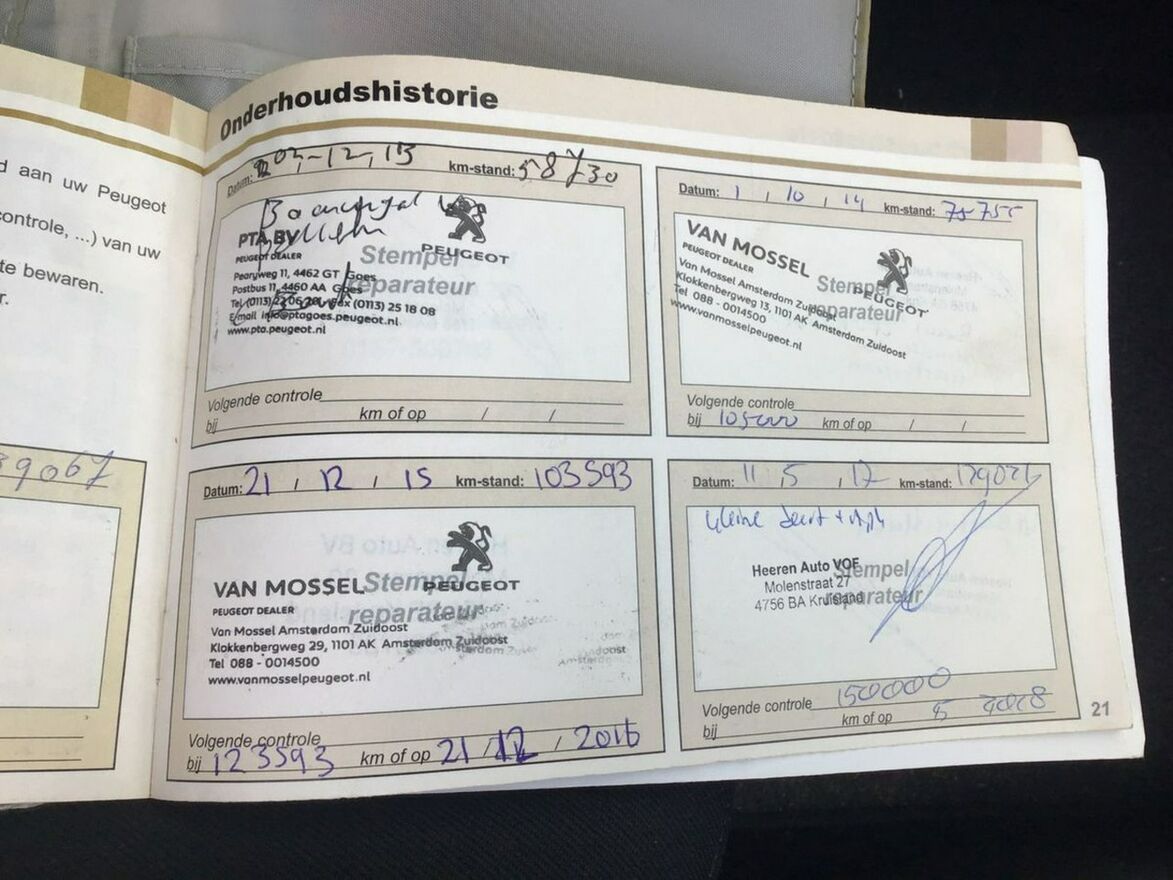 d aan uw Peugeot
controle, ...) van uw
te bewaren.
r.
39067
Onderhoudshistorie
Datum: 02-12-13 km-stand: 58730
PTA BV
PEUGEOT DEALER
PEUGEOT
Pearyweg 11, 4462 GT Goes
Postbus 11, 4460 AA Goes
Tel. (0113) 22 06 20, Fax (0113) 25 18 08
E-mail info@ptagoes.peugeot.nl
www.pta.peugeot.nl
Stempel
reparateur
Volgende controle
bij km of op / /
Datum: 1 / 10 / 14 km-stand: 75755
VAN MOSSEL
PEUGEOT DEALER
PEUGEOT
Van Mossel Amsterdam Zuidoost
Klokkenbergweg 13, 1101 AK Amsterdam Zuidoost
Tel 088 - 0014500
www.vanmosselpeugeot.nl
Stempel
reparateur
Volgende controle
bij 105000 km of op / /
Datum: 21 / 12 / 15 km-stand: 103593
VAN MOSSEL
PEUGEOT DEALER
PEUGEOT
Stempel
reparateur
Van Mossel Amsterdam Zuidoost
Klokkenbergweg 29, 1101 AK Amsterdam Zuidoost
Tel 088 - 0014500
www.vanmosselpeugeot.nl
Volgende controle
bij 123593 km of op 21 / 12 / 2016
Datum: 11 / 5 / 17 km-stand:
kleine beurt +
Heeren Auto VOF
Molenstraat 27
4756 BA Kruisland
Stempel
reparateur
Volgende controle 150000
bij km of op 5 2018
21